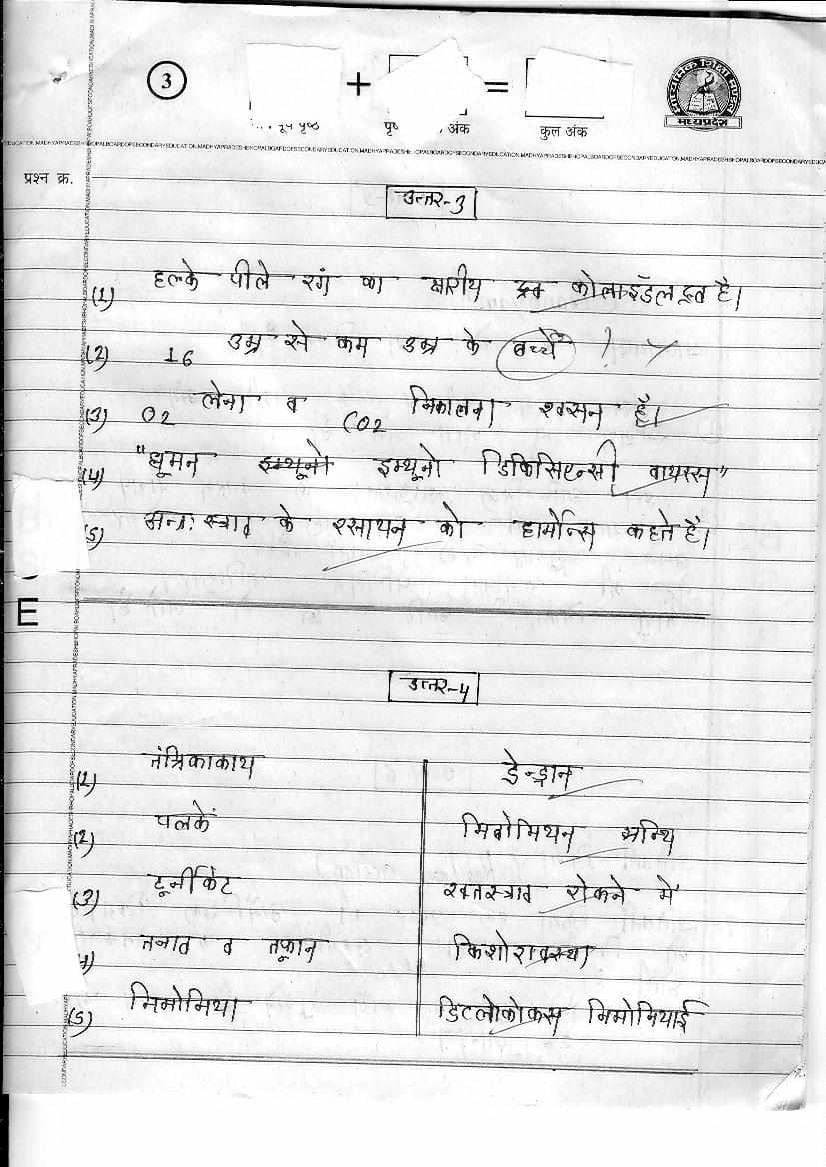 3
+
=
माध्यमिक शिक्षा मण्डल
मध्यप्रदेश
पृष्ठ
अंक
कुल अंक
प्रश्न क्र.
उत्तर-3
(1) हल्के पीले रंग का क्षारीय द्रव कोलाइडल द्रव है।
(2) 16 उम्र से कम उम्र के बच्चे
(3) O2 लेना व CO2 निकालना श्वसन है।
(4) "ह्यूमन इम्यूनो इम्यूनो डिफिसिएन्सी वायरस"
(5) अन्तः स्त्राव के रसायन को हार्मोन्स कहते हैं।
E
उत्तर-4
(1) तंत्रिकाकाय डेन्ड्रान
(2) पलकें मिबोमियन ग्रन्थि
(3) टूर्नीकेट रक्तस्त्राव रोकने में
4) तनाव व तूफान किशोरावस्था
(5) निमोनिया डिप्लोकोकस निमोनियाई